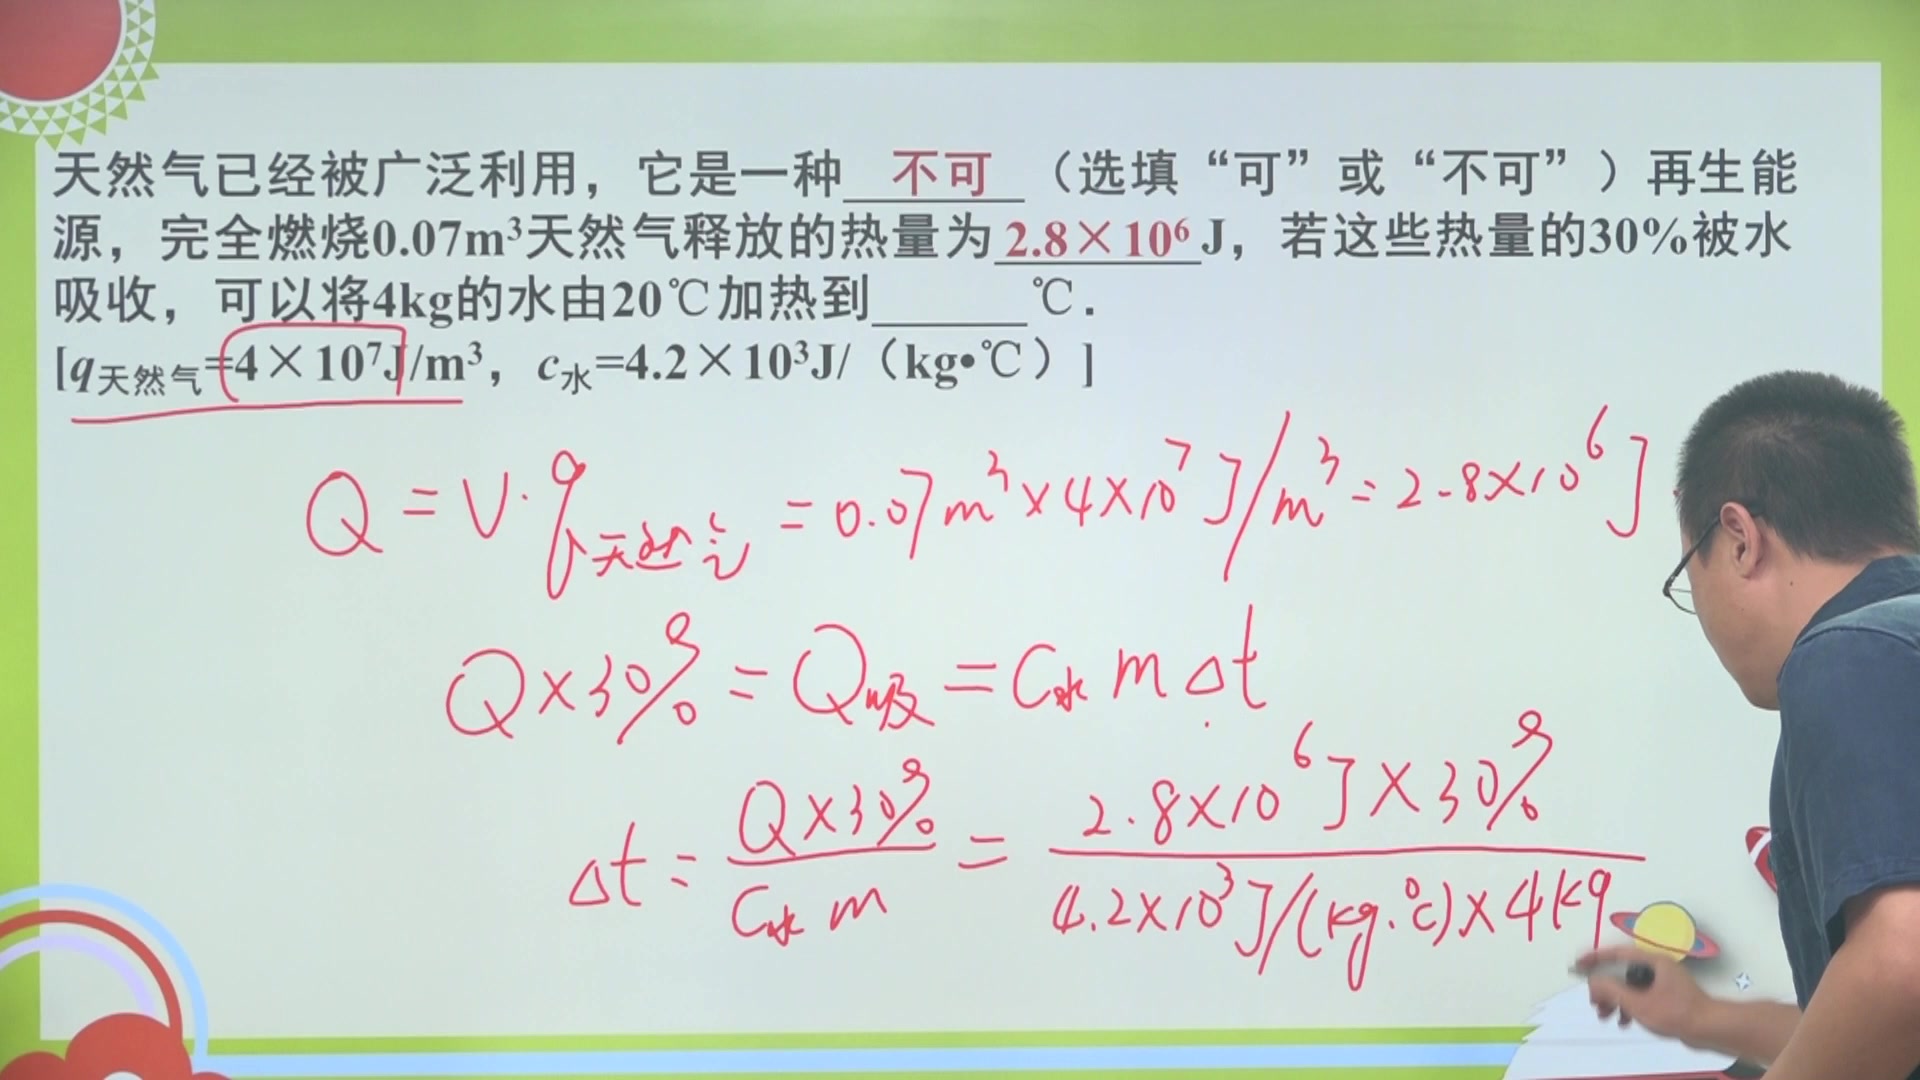 天然气已经被广泛利用，它是一种 不可 （选填“可”或“不可”）再生能
源，完全燃烧0.07m³天然气释放的热量为2.8×10⁶J，若这些热量的30%被水
吸收，可以将4kg的水由20℃加热到______℃.
[q天然气=4×10⁷J/m³，c水=4.2×10³J/（kg•℃）]
Q=V·q天然气=0.07m³×4×10⁷J/m³=2.8×10⁶J
Q×30%=Q吸=C水mΔt
Δt=Q×30%/C水m=2.8×10⁶J×30%/4.2×10³J/(kg·℃)×4kg